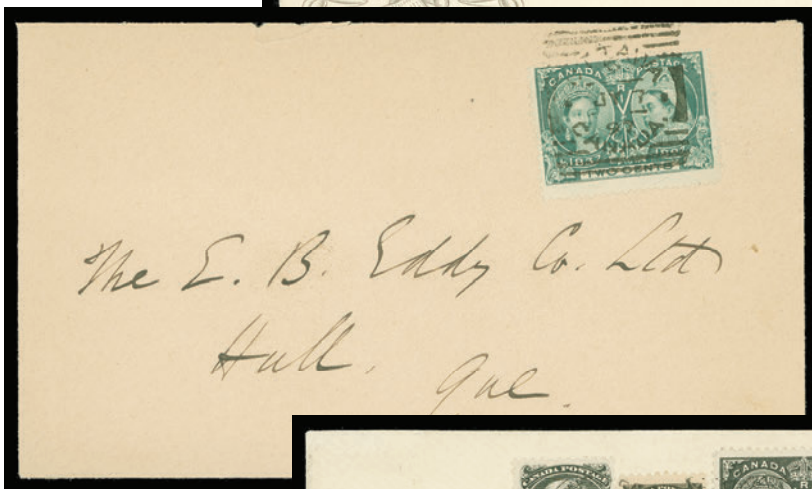 CANADA POSTAGE
TWO CENTS
The E. B. Eddy Co. Ltd
Hull,
Que.
CANADA POSTAGE
CANADA